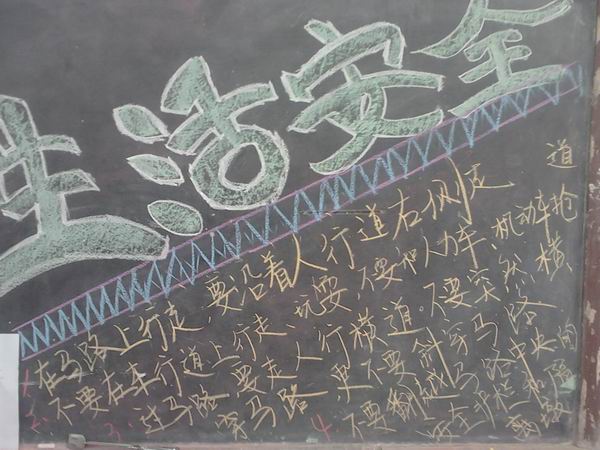 生活安全
1、在马路上行走 要沿着人行道右侧走
2、不要在车行道上行走、玩耍、不要和人力车、机动车抢道
3、过马路要走人行横道。不要突然横
穿马路 不要斜穿马路
4、不要翻越马路中央的
护栏和隔